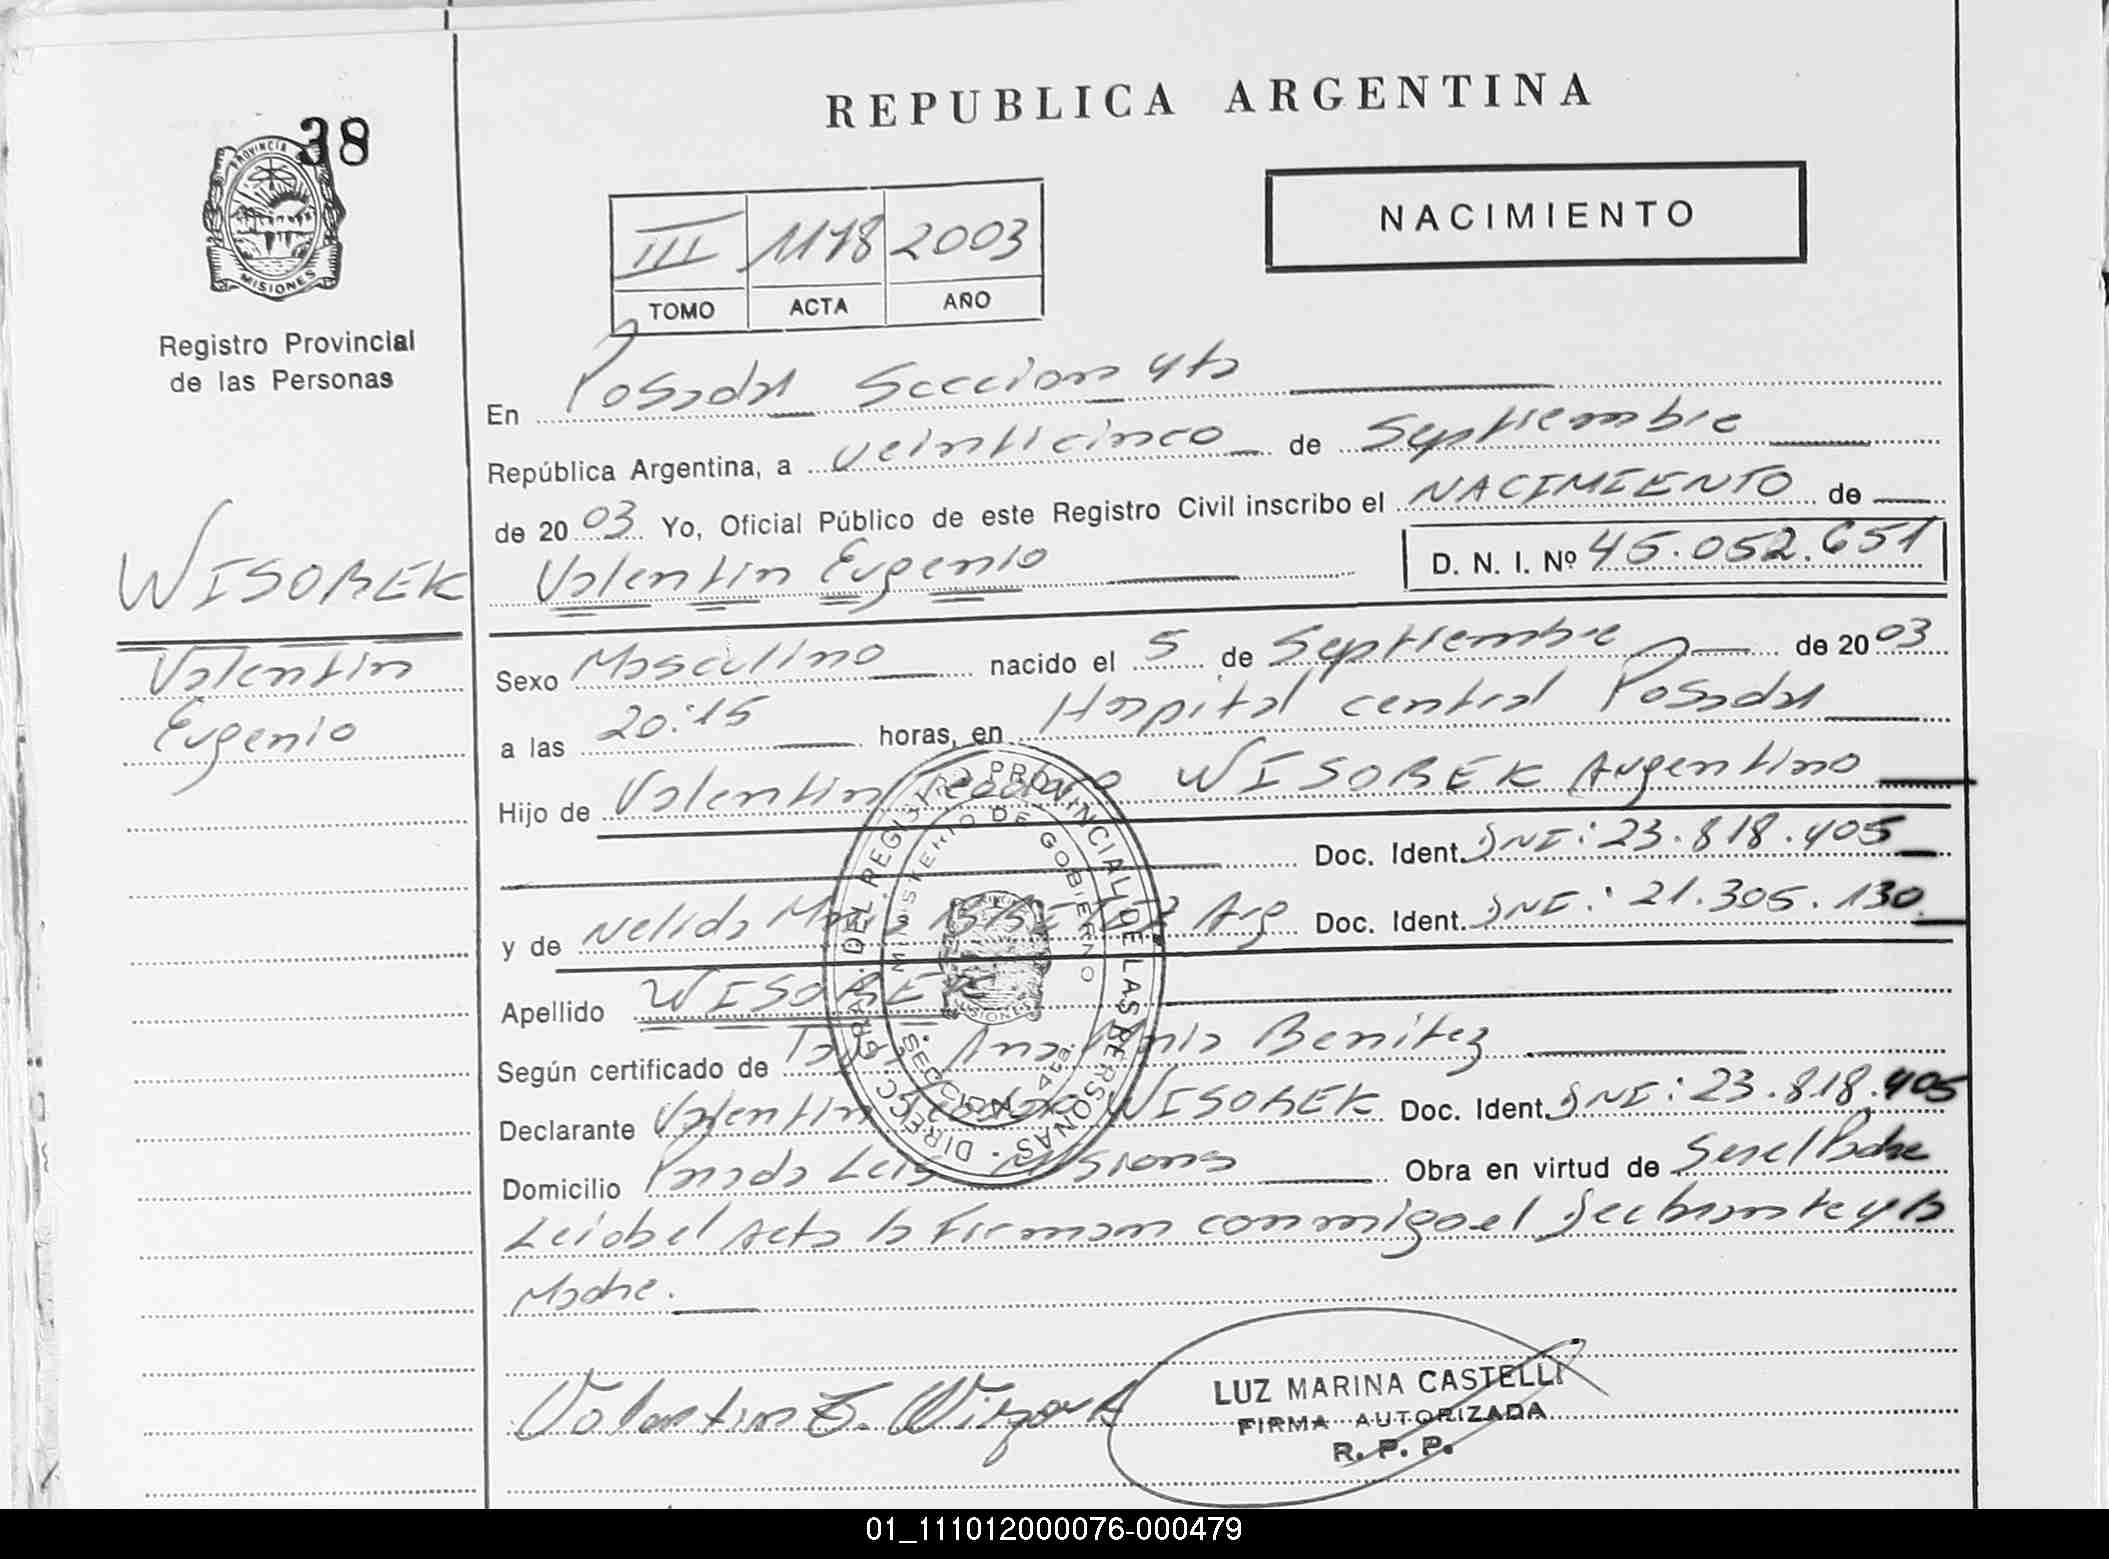 REPUBLICA ARGENTINA
38
PROVINCIA
MISIONES
NACIMIENTO
III 1178 2003
TOMO ACTA AÑO
Registro Provincial
de las Personas
En Posadas Seccion 4ta
República Argentina, a veinticinco de Septiembre
de 2003 Yo, Oficial Público de este Registro Civil inscribo el NACIMIENTO de
WISOREK
Valentin Eugenio D. N. I. Nº 45.052.651
Valentin
Eugenio
Sexo Masculino nacido el 5 de Septiembre de 2003
a las 20:15 horas, en Hospital central Posadas
Hijo de Valentin WISOREK Argentino
Doc. Ident. DNI: 23.818.405
y de Nelida Arg Doc. Ident. DNI: 21.305.130
Apellido WISOREK
Según certificado de Ana Benítez
Declarante Valentin WISOREK Doc. Ident. DNI: 23.818.405
Domicilio Misiones Obra en virtud de Ser el Padre
Leida el Acta la Firman conmigo el declarante y la
Madre.
DIRECC. GRAL. DEL REGISTRO PROVINCIAL DE LAS PERSONAS
MINISTERIO DE GOBIERNO
SECCIONAL 4ta.
MISIONES
LUZ MARINA CASTELLI
FIRMA AUTORIZADA
R. P. P.
01_111012000076-000479